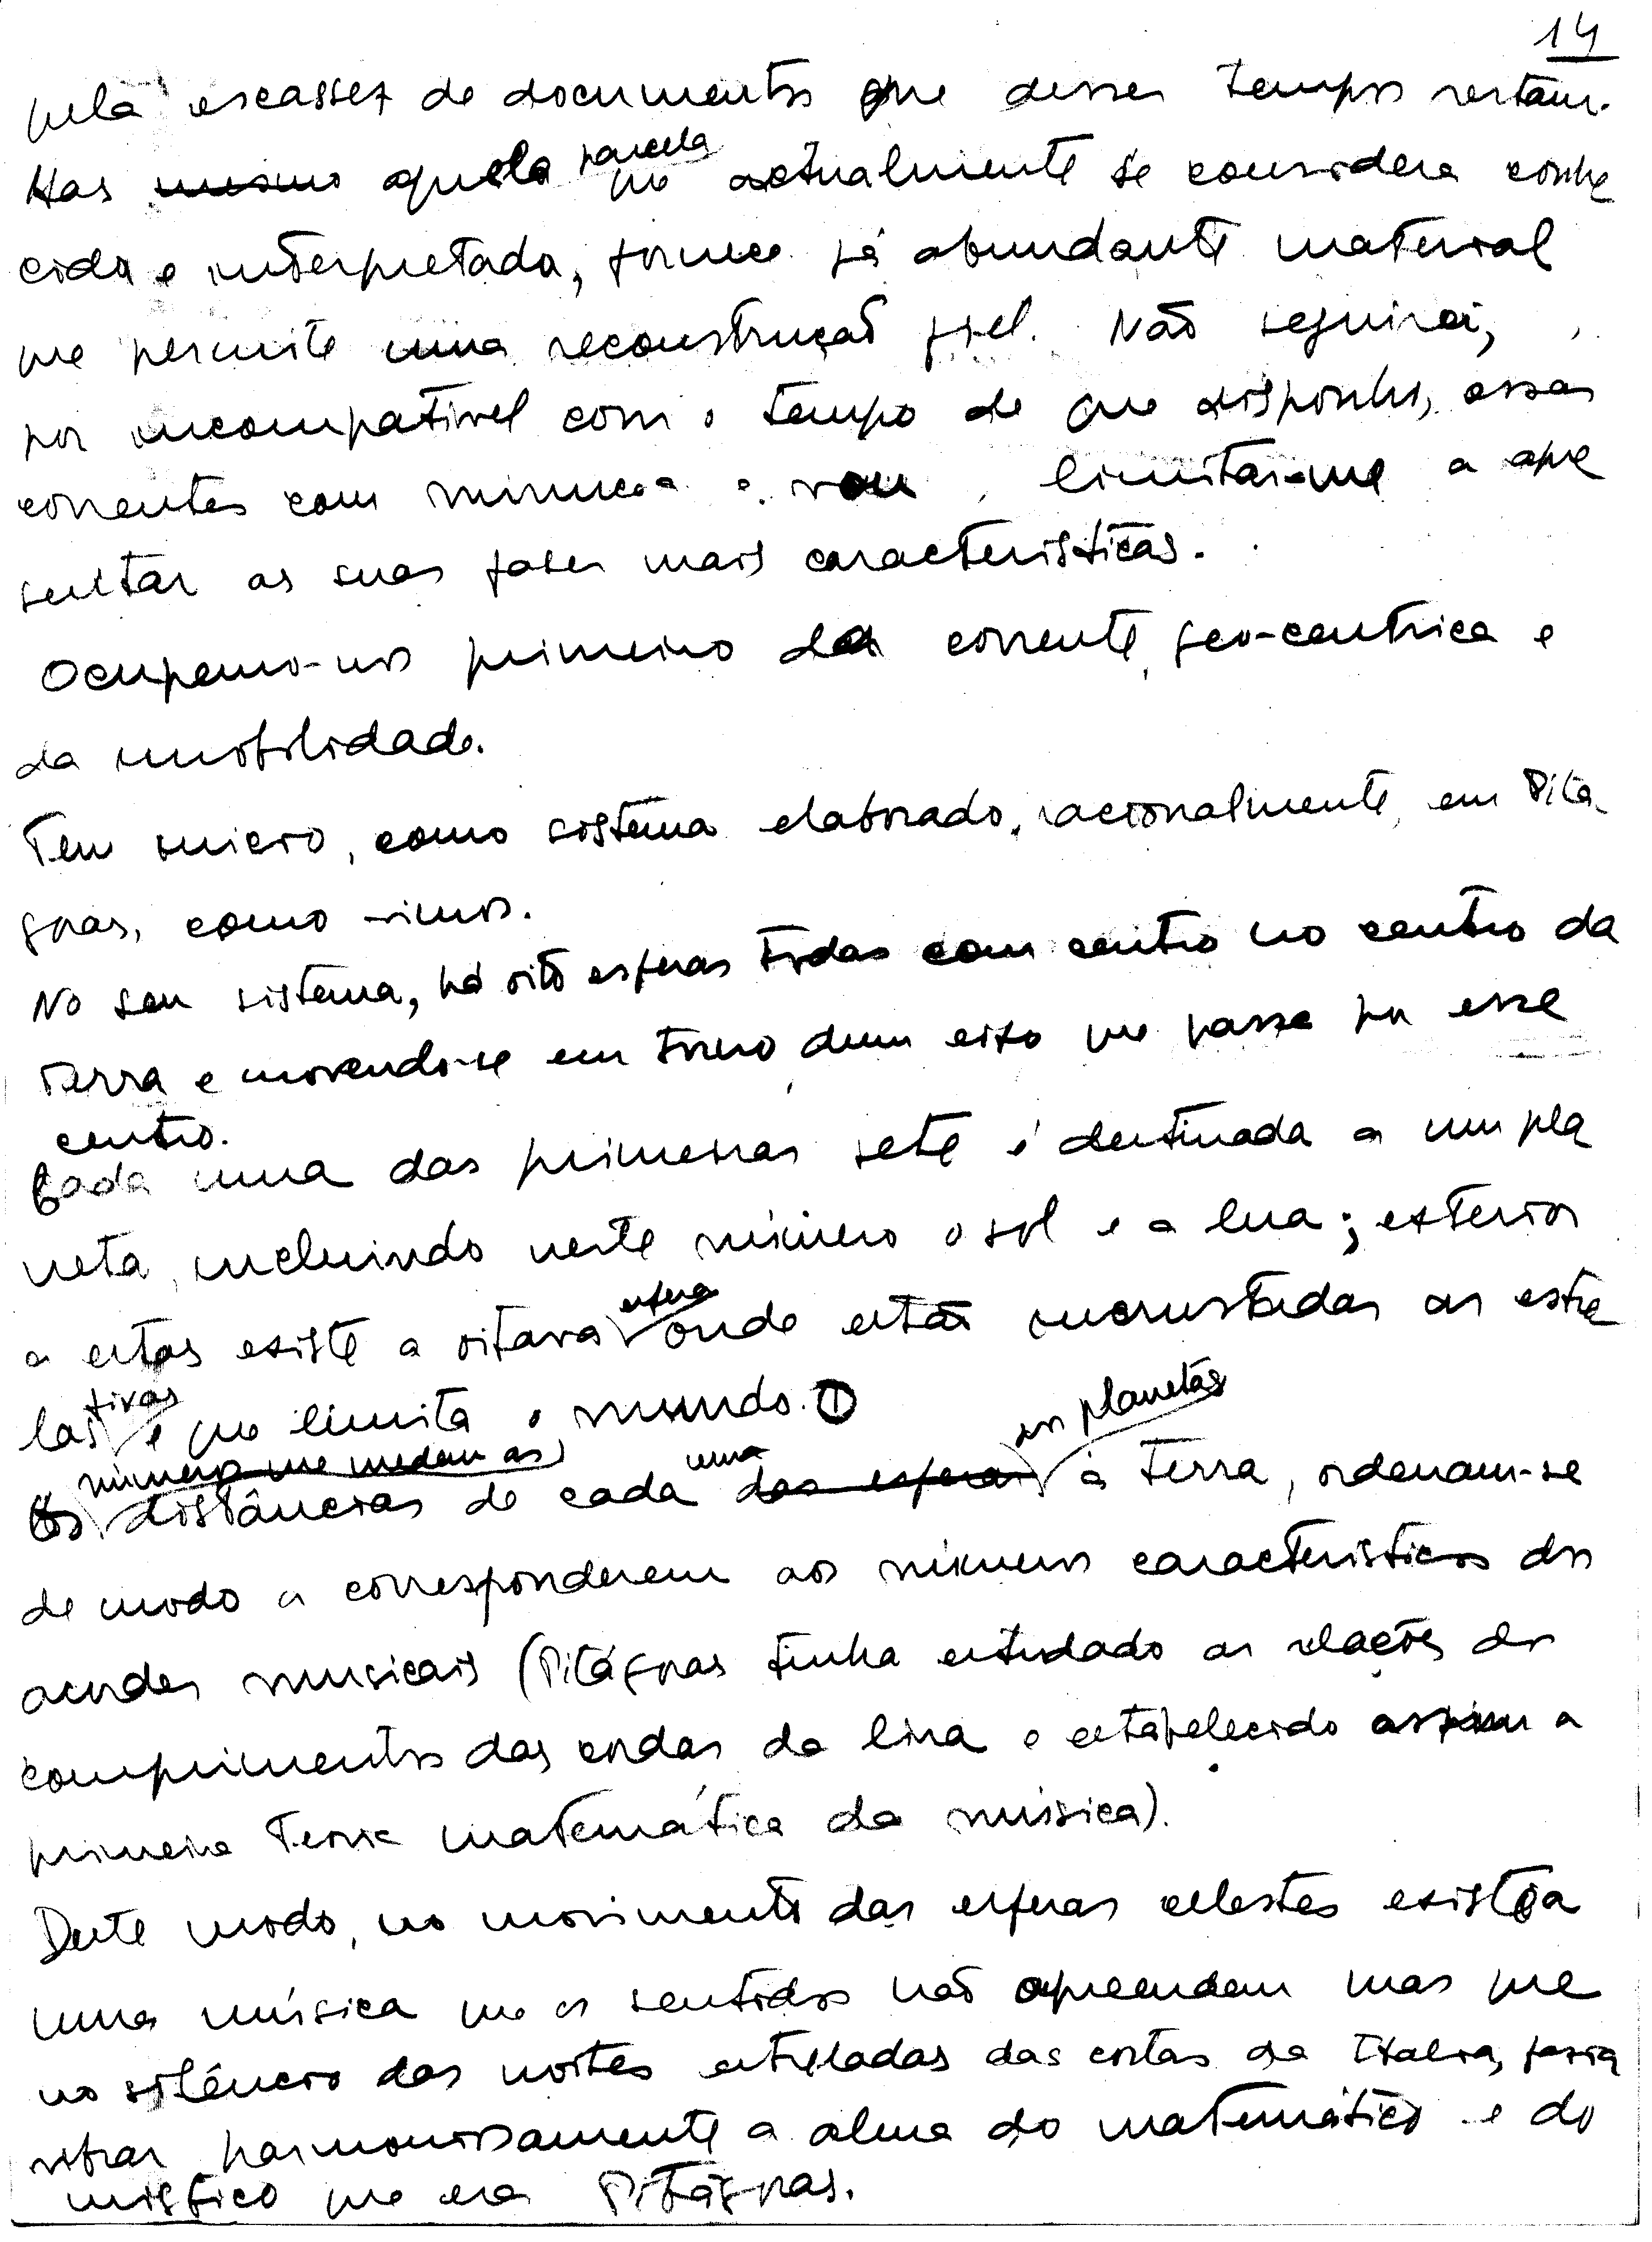 14
pela escassez de documentos que desses tempos restam.
Mas mesmo aquela parcela que actualmente se considera conhe
cida e interpretada, fornece já abundante material
que permite uma reconstrução fiel. Não seguirei,
por incompativel com o tempo de que disponho, essas
correntes com minucia e vou limitar-me a apre
sentar as suas fases mais caracteristicas.
Ocupemo-nos primeiro da corrente geo-centrica e
da imobilidade.
Tem inicio, como sistema elaborado racionalmente, em Pitá
goras, como vimos.
No seu sistema, há oito esferas todas com centro no centro da
Terra e movendo-se em torno dum eixo que passa por esse
centro.
Cada uma das primeiras sete é destinada a um pla
neta, incluindo neste número o sol e a lua; exterior
a estas existe a oitava esfera onde estão incrustadas as estre
las fixas e que limita o mundo. ①
Os números que medem as distâncias de cada uma das esferas dos planetas à Terra, ordenam-se
de modo a corresponderem aos números caracteristicos dos
acordes musicais (Pitágoras tinha estudado as relações dos
comprimentos das cordas da lira e estabelecido assim a
primeira Teoria matemática da música).
Deste modo, no movimento das esferas celestes existia
uma música que os sentidos não apreendem mas que
no silêncio das noites estreladas das costas da Italia, fazia
vibrar harmoniosamente a alma do matemático e do
mistico que era Pitágoras.